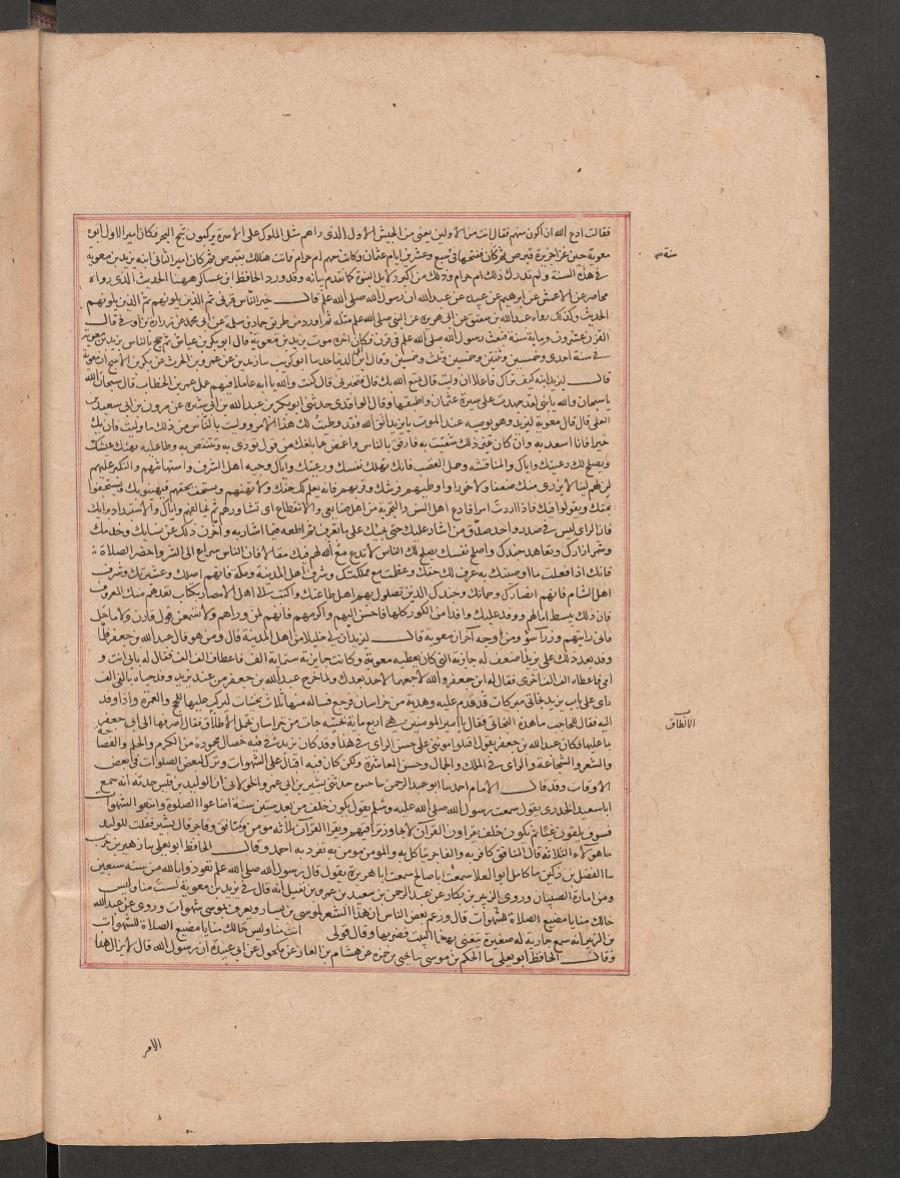 فقالت ادع الله ان اكون منهم فقال انت من الاولين يعني من الجيش الاول الذي راهم مثل الملوك على الاسرة يركبون ثبج البحر فكان امير الاول ابوه
معوية حين غزا جزيرة قبرص ففتحها في سبع وعشرين ايام عثمان وكانت معهم ام حرام فماتت هنالك بقبرص ثم كان امير الثاني ابنه يزيد بن معوية
في هذه السنة ولم تدرك ذلك ام حرام وذلك من اكبر دلايل النبوة كما تقدم بيانه وقد ورد الحافظ ابن عساكر ههنا الحديث الذي رواه
محاضر عن الاعمش عن ابرهيم عن عبيده عن عبد الله ان رسول الله صلى الله علم قال خير الناس قرني ثم الذين يلونهم ثم الذين يلونهم
الحديث وكذلك رواه عبد الله بن شقيق عن ابي هريرة عن النبي صلى الله علم مثله ثم اورد من طريق حماد بن سلمة عن ابي محمد عن زرارة بن اوفي قال
القرن عشرون وماية سنة فبعث رسول الله صلى الله علم في قرن وكان اخره موت يزيد بن معوية قال ابو بكر بن عياش ثم حج بالناس يزيد بن معوية
في سنة احدى وخمسين وثنتين وخمسين وثلث وخمسين وقال ابن ابي الدنيا حدسا ابو كريب سا رشد بن عن عمرو بن الحرث عن بكير بن الاشج ان معوية
قال ليزيد ابنه كيف تراك فاعلا ان وليت قال يمتع الله بك قال لتخبرني قال كنت والله يا ابه عاملا فيهم عمل عمر بن الخطاب قال سبحان الله
يا سبحان والله يا بني لقد جهدت على سيرة عثمان فما اطقتها وقال الواقدي حدثني ابو بكر بن عبد الله بن ابي سبرة عن مرون بن ابي سعيد بن
المعلى قال قال معوية ليزيد وهو يوصيه عند الموت يا يزيد اتق الله فقد وطيت لك هذا الامر ووليت بالناس من ذلك ما وليت فان يك
خيرا فانا اسعد به وان كان غير ذلك شقيت به فارفق بالناس واغمض عما بلغك من قول تؤذى به وتنتقص به وطا عليه يهنك عيشك
ويصلح لك رعيتك واياك والمناقشة وحمل الغضب فانك تهلك نفسك ورعيتك واياك وجبه اهل الشرف واستهانتهم والتكبر عليهم
لن لهم لينا لا يرون منك ضعفا ولا خورا واوطيهم فرشك وقربهم فانه يعلم لك حقك ولا تهنهم وتستخف بحقهم فيهينوك ويستخفوا
بحقك ويقعوا فيك فاذا اردت امرا فادع اهل السن والتجربة من اهل صنايعي والانقطاع اي تشاورهم ثم لا تخالفهم واياك والاستبداد برايك
فان الراي ليس في صدر واحد صدق من اشار عليك حتى يحملك على ما تعرف ثم اطعه فيما اشار به واخزن ذلك عن نسايك وخدمك
وشمر ازارك وتعاهد جندك واصلح نفسك يصلح لك الناس لا تدع مع الله لهم فيك مقالا فان الناس سراع الى الشر واحضر الصلاة
فانك اذا فعلت ما اوصيتك به عرف لك حقك وعظمت مملكتك وشرف اهل المدينة ومكة فانهم اصلك وعشيرتك وشرف
اهل الشام فانهم انصارك وحماتك وجندك الذين تصول بهم اهل طاعتك واكتب الى اهل الامصار بكتاب تعدهم منك المعروف
فان ذلك يبسط امالهم ووفد عليك وافدا من الكور كلها فاحسن اليهم واكرمهم فانهم لمن وراهم ولا تسمعن قول قاذف ولا ماحل
فاني رايتهم وزراء سوء ومن اوجه اخر ان معوية قال ليزيد ان لي خليلا من اهل المدينة قال ومن هو قال عبد الله بن جعفر فلما
وفد بعد ذلك على يزيد اضعف له جايزته التي كان يعطيه معوية وكانت جايزته ستماية الف فاعطاه الف الف فقال له بابي انت و
امي فاعطاه الف الف اخرى فقال له ابن جعفر والله لا اجمعها لاحد بعدك ولما خرج عبد الله بن جعفر من عند يزيد وقد حباه بالفي الف
راى على باب يزيد بخاتي مبركات قد قدم عليه وهدية من خراسان فرجع فساله منها ثلاث بخاتيات ليركب عليها الى الحج والعمرة واذا وفد
اليه فقال للحاجب ما هذه البخاتي فقال يا امير المومنين هي اربع ماية بختيه جات من خراسان تحمل الالطاف فقال اصرفها الى ابي جعفر
بما عليها فكان عبد الله بن جعفر يقول اتلوموني على حسن الراي في هذا وقد كان يزيد فيه خصال محمودة من الكرم والحلم والفصاحة
والشعر والشجاعة والراي في الملك والجمال وحسن المعاشرة ولكن كان فيه اقبال على الشهوات وترك بعض الصلوات في بعض
الاوقات وقد قال الامام احمد سا ابو عبد الرحمن سا حيوة حدثني بشير بن ابي عمرو الخولاني ان الوليد بن قيس حدثه انه سمع
ابا سعيد الخدري يقول سمعت رسول الله صلى الله عليه وسلم يقول يكون خلف من بعد ستين سنة اضاعوا الصلوة واتبعوا الشهوات
فسوف يلقون غيا ثم يكون خلف يقراون القران لا يجاوز تراقيهم ويقرا القران ثلاثه مومن ومنافق وفاجر قال بشير فقلت للوليد
ما هؤلاء الثلاثه قال المنافق كافر به والفاجر يتاكل به والمومن يومن به تفرد به احمد وقال الحافظ ابو يعلى سا زهير بن حرب
سا الفضل بن دكين سا كامل ابو العلا سمعت ابا صالح سمعت ابا هريرة يقول قال رسول الله صلى الله علم تعوذوا بالله من سنه سبعين
ومن امارة الصبيان وروى الزبير بن بكار عن عبد الرحمن بن سعيد بن عمرو بن نفيل انه قال في يزيد بن معوية لست منا وليس
خالك منا يا مضيع الصلاة للشهوات قال وزعم بعض الناس ان هذا الشعر لموسى بن يسار ويعرف بموسى شهوات وروى عن عبد الله
بن الزبير انه سمع جارية له صغيرة تتغنى بهذا البيت فضربها وقال قولي انت منا وليس خالك منا يا مضيع الصلاة للشهوات
وقال الحافظ ابو يعلى سا الحكم بن موسى سا يحيى بن حمزه عن هشام بن الغاز عن مكحول عن ابي عبيدة ان رسول الله قال لا يزال هذا
سنة
الالطاف
الامر